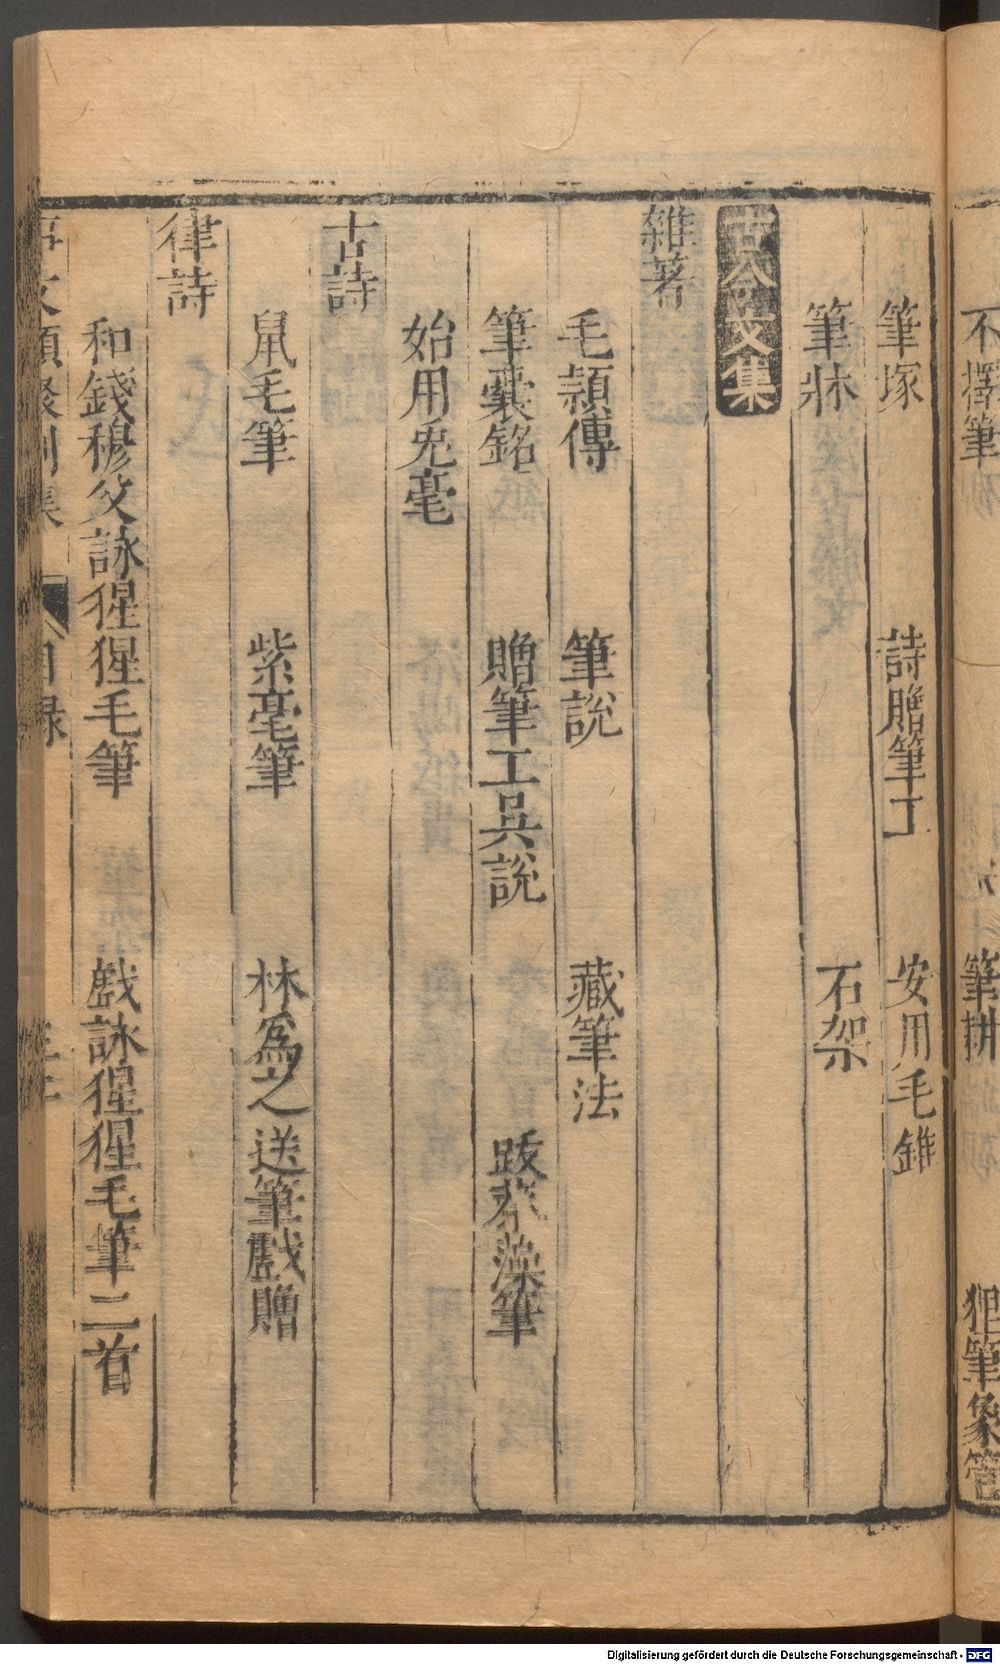 不擇筆　筆耕　狸筆象管
筆塚　詩贈筆工　安用毛錐
筆牀　石架
古今文集
雜著
毛頴傳　筆說　藏筆法
筆囊銘　贈筆工吳說　跋蔡藻筆
始用兎毫
古詩
鼠毛筆　紫毫筆　林爲之送筆戲贈
律詩
和錢穆父詠猩猩毛筆　戲詠猩猩毛筆二首
事文類聚別集　目録
Digitalisierung gefördert durch die Deutsche Forschungsgemeinschaft - DFG